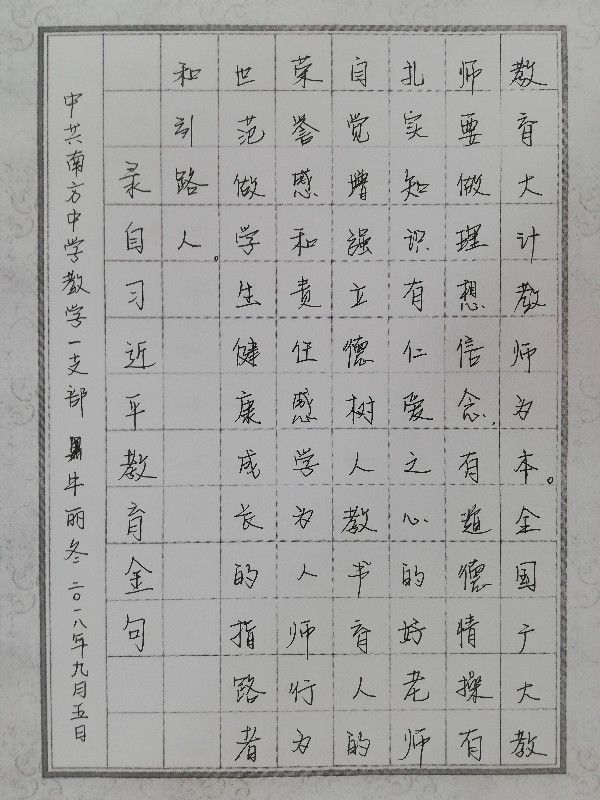 教育大计教师为本。全国广大教
师要做理想信念、有道德情操有
扎实知识有仁爱之心的好老师
自觉增强立德树人教书育人的
荣誉感和责任感学为人师行为
世范做学生健康成长的指路者
和引路人。
录自习近平教育金句
中共南方中学教学一支部 牛丽冬 二〇一八年九月五日